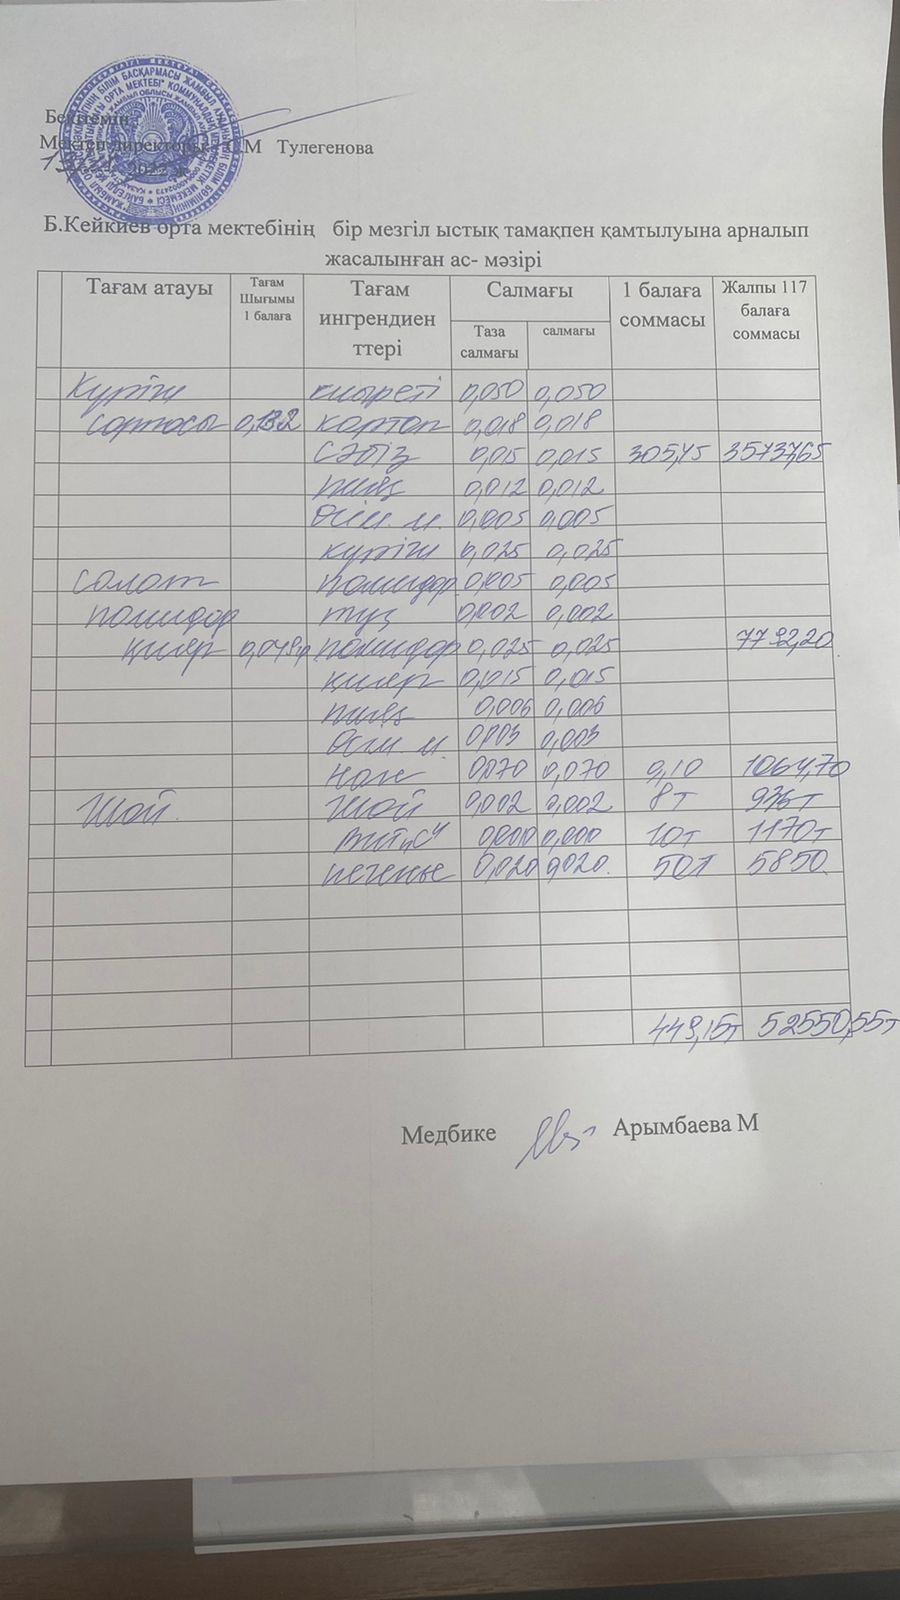 Бекітемін
Мектеп директоры С.М Тулегенова
2022 ж
Б.Кейкиев орта мектебінің бір мезгіл ыстық тамақпен қамтылуына арналып
жасалынған ас- мәзірі
Тағам атауы Тағам Шығымы 1 балаға Тағам ингрендиен ттері Салмағы 1 балаға соммасы Жалпы 117 балаға соммасы
Таза салмағы салмағы
Күріш 0,050 0,050
сорпасы 0,132 картоп 0,018 0,018
сәбіз 0,015 0,015 305,45 35737,65
пияз 0,012 0,012
өсім м. 0,005 0,005
күріш 0,025 0,025
салат помидор 0,005 0,005
помидор тұз 0,002 0,002
қияр 0,049 помидор 0,025 0,025 7792,20
қияр 0,015 0,015
пияз 0,006 0,006
өсім м 0,003 0,003
нан 0,070 0,070 9,10 1064,70
Шай. Шай 0,002 0,002 8т 936т
вит,,С" 0,000 0,000 10т 1170т
печенье 0,020 0,020. 50т 5850.
449,15т 52550,55т
Медбике Арымбаева М